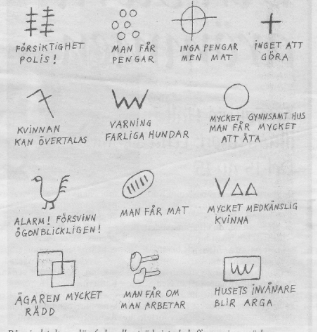 FÖRSIKTIGHET
POLIS!
MAN FÅR
PENGAR
INGA PENGAR
MEN MAT
INGET ATT
GÖRA
KVINNAN
KAN ÖVERTALAS
VARNING
FARLIGA HUNDAR
MYCKET GYNNSAMT HUS
MAN FÅR MYCKET
ATT ÄTA
ALARM! FÖRSVINN
ÖGONBLICKLIGEN!
MAN FÅR MAT
MYCKET MEDKÄNSLIG
KVINNA
ÄGAREN MYCKET
RÄDD
MAN FÅR OM
MAN ARBETAR
HUSETS INVÅNARE
BLIR ARGA